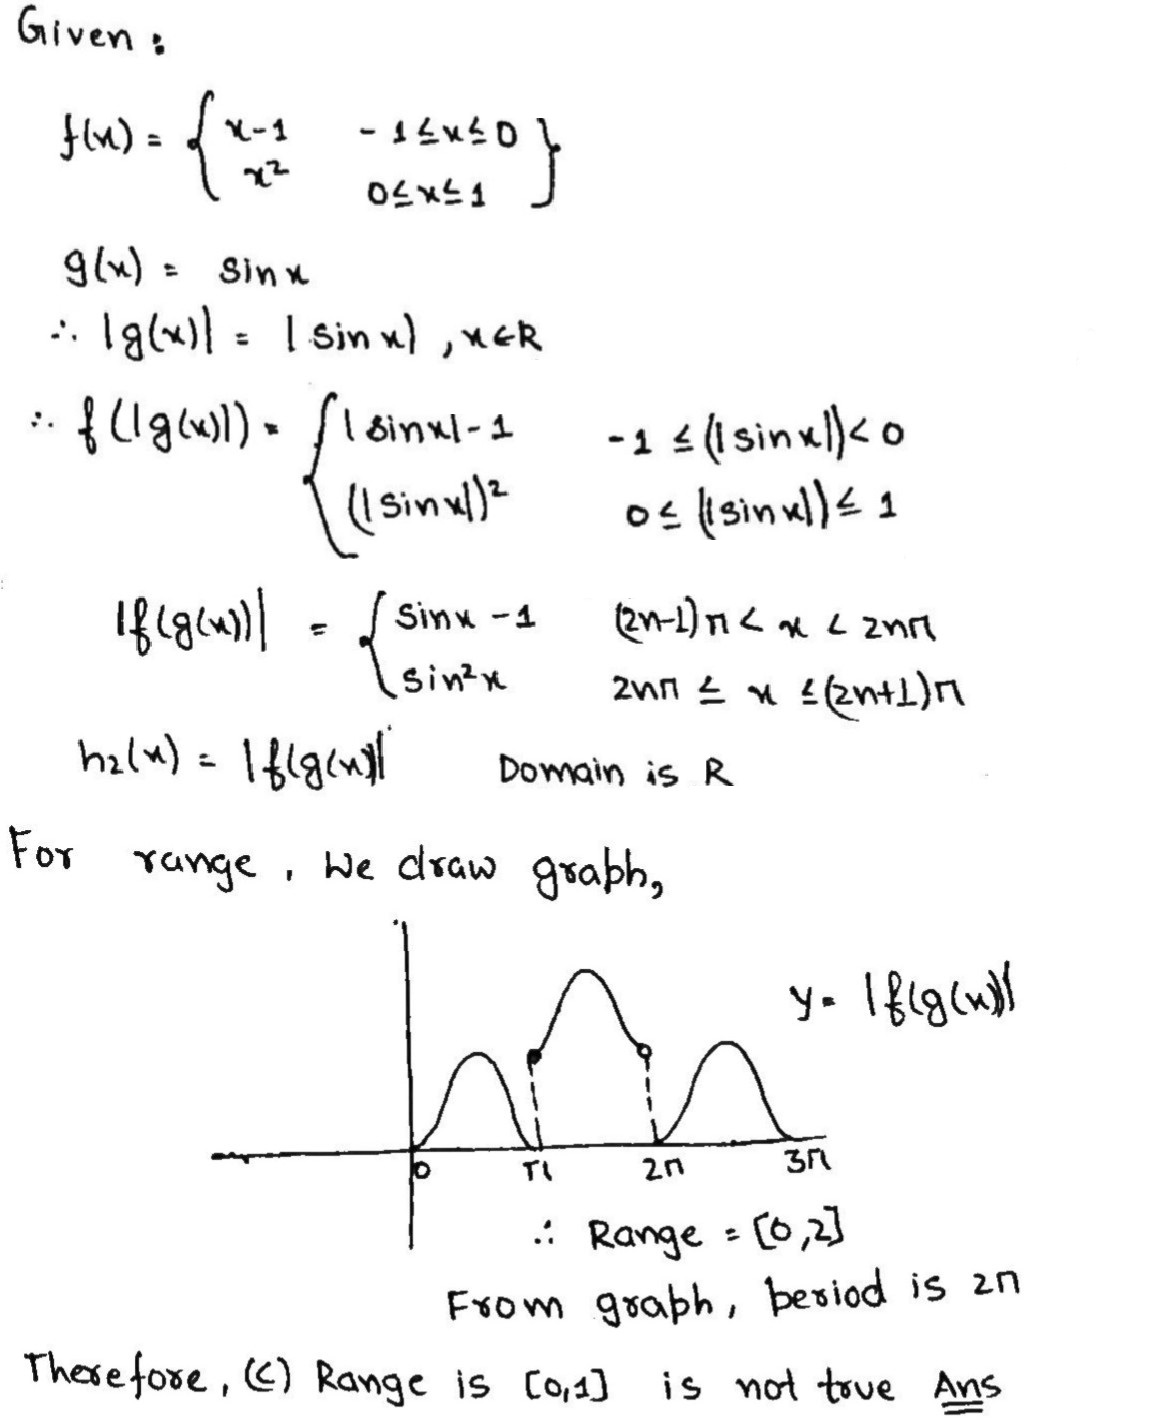 Given :
f(x) = { x-1 -1≤x≤0 }
x² 0≤x≤1
g(x) = sin x
∴ |g(x)| = |sin x| , x∈R
∴ f(|g(x)|) = { |sinx|-1 -1 ≤ (|sin x|) < 0
(|sinx|)² 0 ≤ (|sinx|) ≤ 1
|f(g(x))| = { sinx -1 (2n-1)π < x < 2nπ
sin²x 2nπ ≤ x ≤ (2n+1)π
h₂(x) = |f(g(x)| Domain is R
For range, We draw graph,
y = |f(g(x))|
0 π 2π 3π
∴ Range = [0,2]
From graph, period is 2π
Therefore, (C) Range is [0,1] is not true Ans